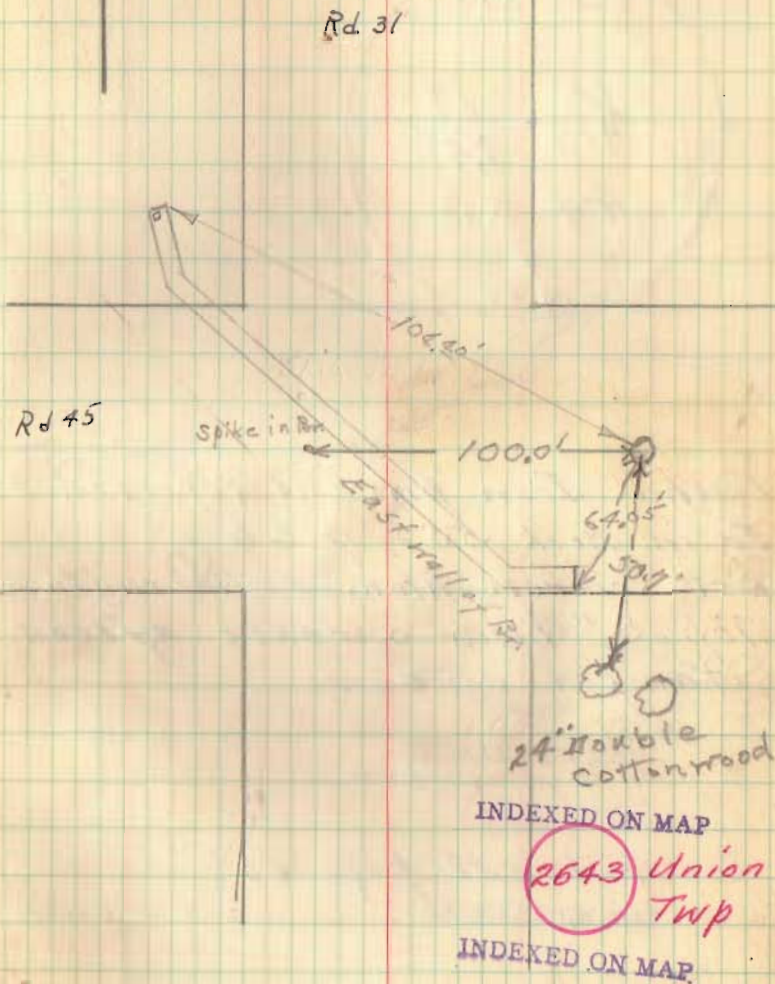 Rd. 31
104.40'
Rd 45
Spike in Br.
100.0'
East wall of Br.
64.05'
50.7'
24" Double
Cottonwood
INDEXED ON MAP
2643 Union
Twp
INDEXED ON MAP